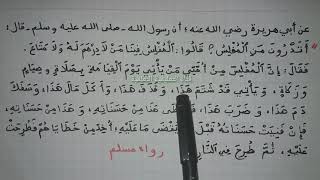 عن أبي هريرة رضي الله عنه؛ أن رسول الله - صلى الله عليه وسلم - قال:
أتدرون من المفلس؟ قالوا: المفلس فينا من لا درهم له ولا متاع.
فقال: إن المفلس من أمتي من يأتي يوم القيامة بصلاة وصيام
وزكاة، ويأتي قد شتم هذا، وقذف هذا، وأكل مال هذا، وسفك
دم هذا، وضرب هذا، فيعطى هذا من حسناته، وهذا من حسناته،
فإن فنيت حسناته قبل أن يقضى ما عليه، أخذ من خطاياهم فطرحت
عليه، ثم طرح في النار
رواه مسلم